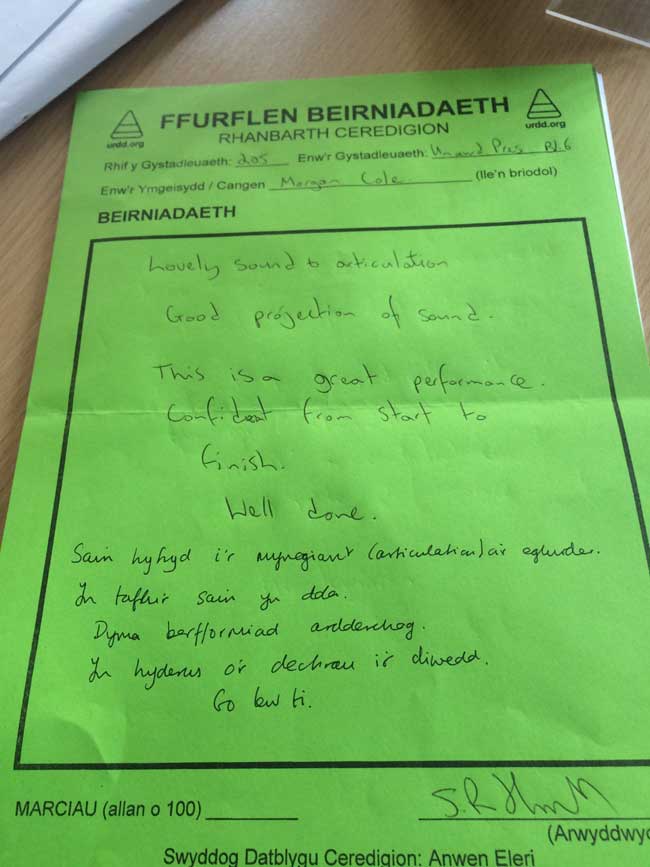 FFURFLEN BEIRNIADAETH
RHANBARTH CEREDIGION
urdd.org
urdd.org
Rhif y Gystadleuaeth: 205 Enw'r Gystadleuaeth: Unawd Pres Bl.6
Enw'r Ymgeisydd / Cangen Morgan Cole (lle'n briodol)
BEIRNIADAETH
Lovely sound to articulation
Good projection of sound.
This is a great performance.
Confident from start to
finish.
Well done.
Sain hyfryd i'r mynegiant (articulation) a'r eglurder.
Yn taflu'r sain yn dda.
Dyma berfformiad ardderchog.
Yn hyderus o'r dechrau i'r diwedd.
Go lew ti.
MARCIAU (allan o 100)
S.R
(Arwyddwyd
Swyddog Datblygu Ceredigion: Anwen Eleri